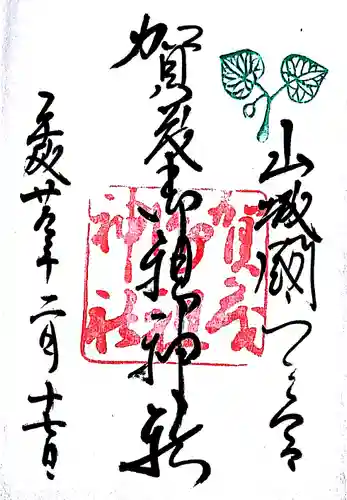 山城國一之宮
賀茂御祖神社
平成廿六年二月十七日
賀茂
御祖
神社